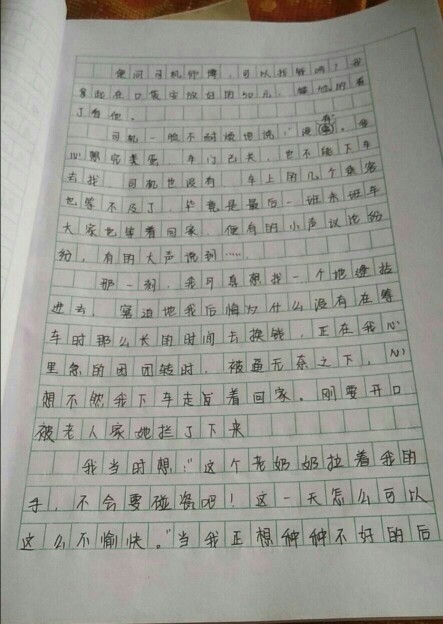 便问司机师傅,可以找钱吗?我
拿起在口袋安放好的50元,尴尬的看
了看他。
司机一脸不耐烦地说:"没有。我
心想完美蛋,车门已关,也不能下车
去找,司机也没有,车上的几个乘客
也等不及了,毕竟是最后一班末班车
大家也等着回家,便有的小声议论纷
纷,有的大声说到……
那一刻,我可真想找一个地缝钻
进去,窘迫地我后悔为什么没有在等
车时那么长的时间去换钱,正在我心
里急的团团转时,被逼无奈之下,心
想不然我下车走着回家。刚要开口
被老人家她拦了下来
我当时想:"这个老奶奶拉着我的
手,不会要碰瓷吧!这一天怎么可以
这么不愉快。"当我正想种种不好的后